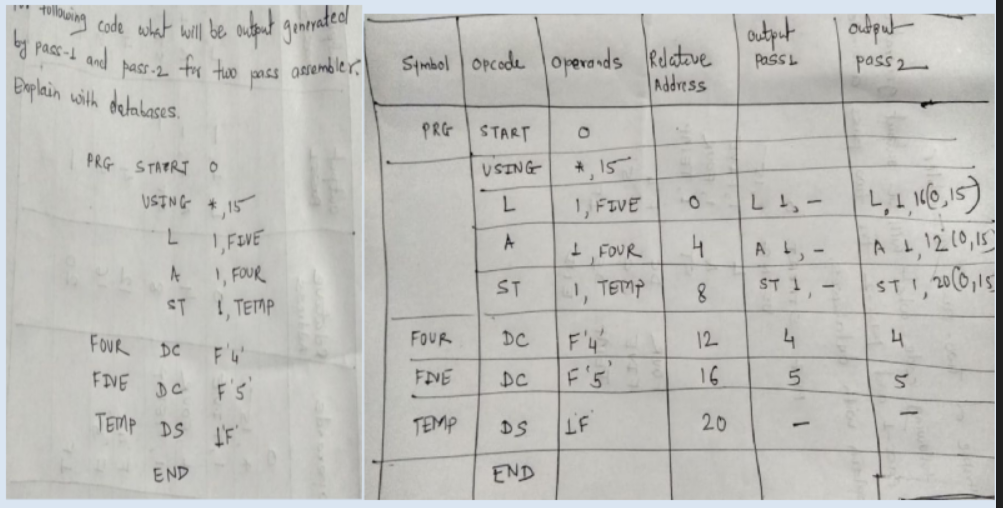 following code what will be output generated
by pass-1 and pass-2 for two pass assembler.
Explain with databases.
PRG START 0
USING *,15
L 1, FIVE
A 1, FOUR
ST 1, TEMP
FOUR DC F'4'
FIVE DC F'5'
TEMP DS 1'F'
END
Symbol Opcode Operands Relative Address output PASS1 output pass2
PRG START 0
USING *,15
L 1, FIVE 0 L 1, - L 1, 16(0,15)
A 1, FOUR 4 A 1, - A 1, 12(0,15)
ST 1, TEMP 8 ST 1, - ST 1, 20(0,15
FOUR DC F'4' 12 4 4
FIVE DC F'5' 16 5 5
TEMP DS 1F 20 - -
END